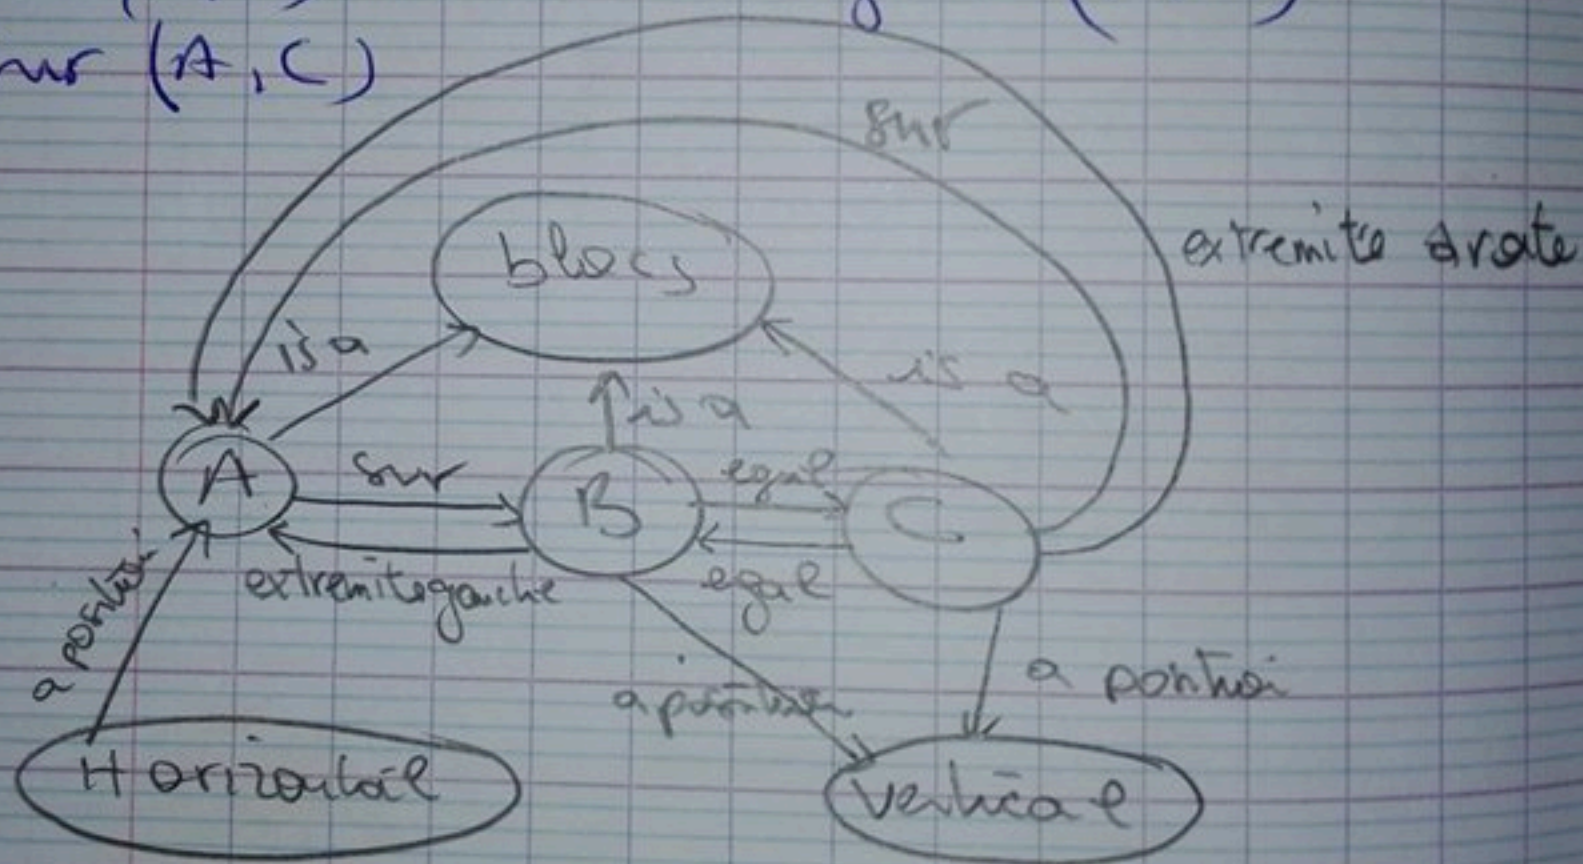 sur (A, C)
sur
extremite droite
blocs
is a
is a
is a
A
sur
B
egal
C
extremite gauche
egal
a position
a position
a position
Horizontal
Vertical